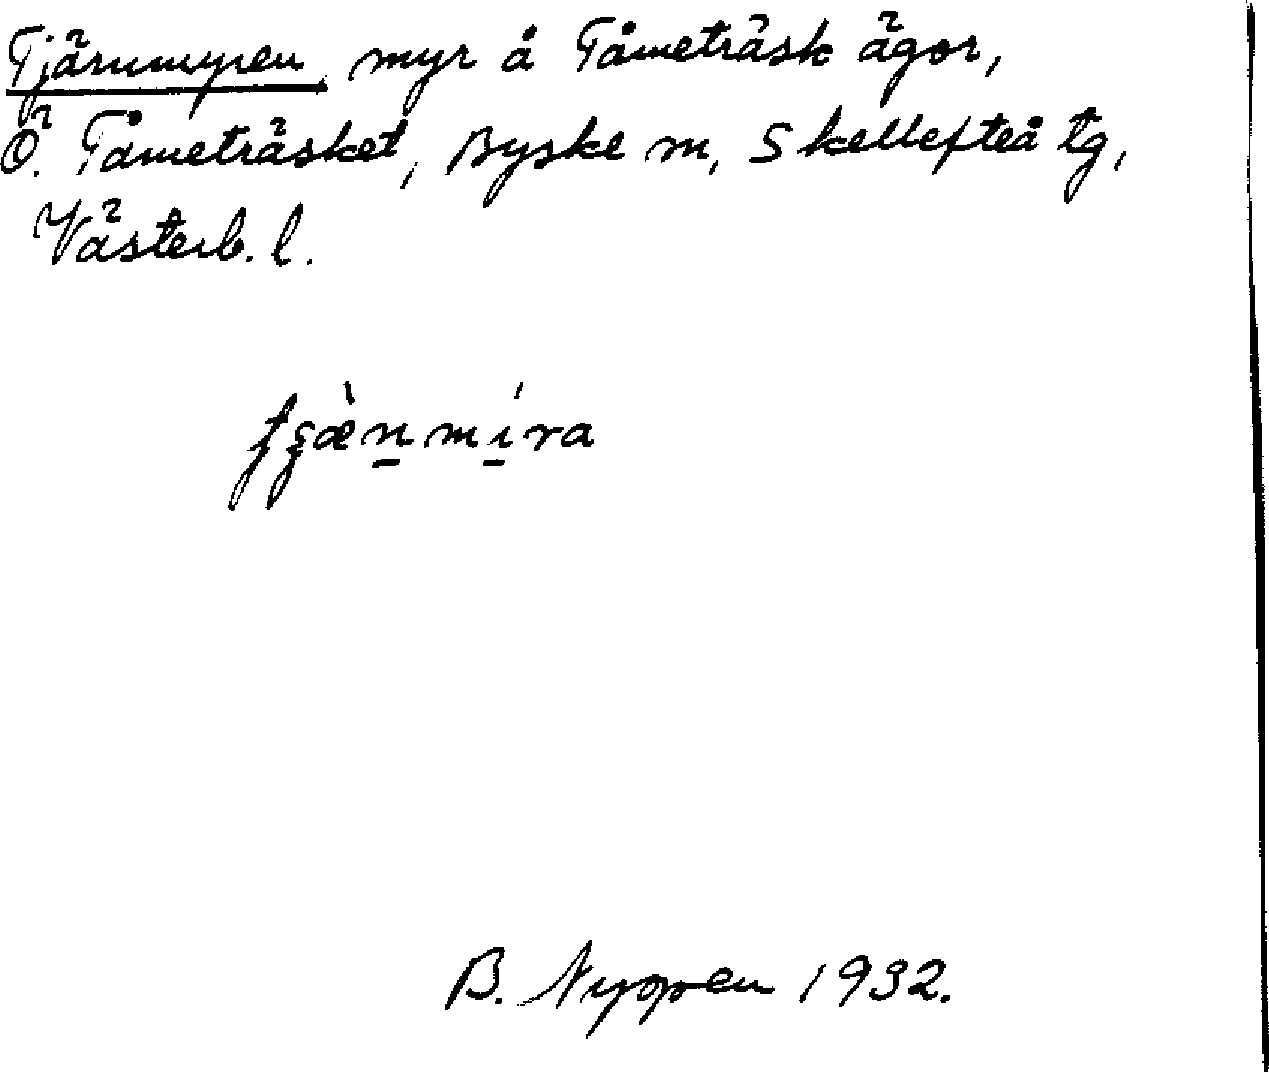 Tjärnmyren, myr å Tåmeträsk ägor,
Ö. Tåmeträsket, Byske sn, Skellefteå tg,
Västerb. l.
B. Nyppen 1932.